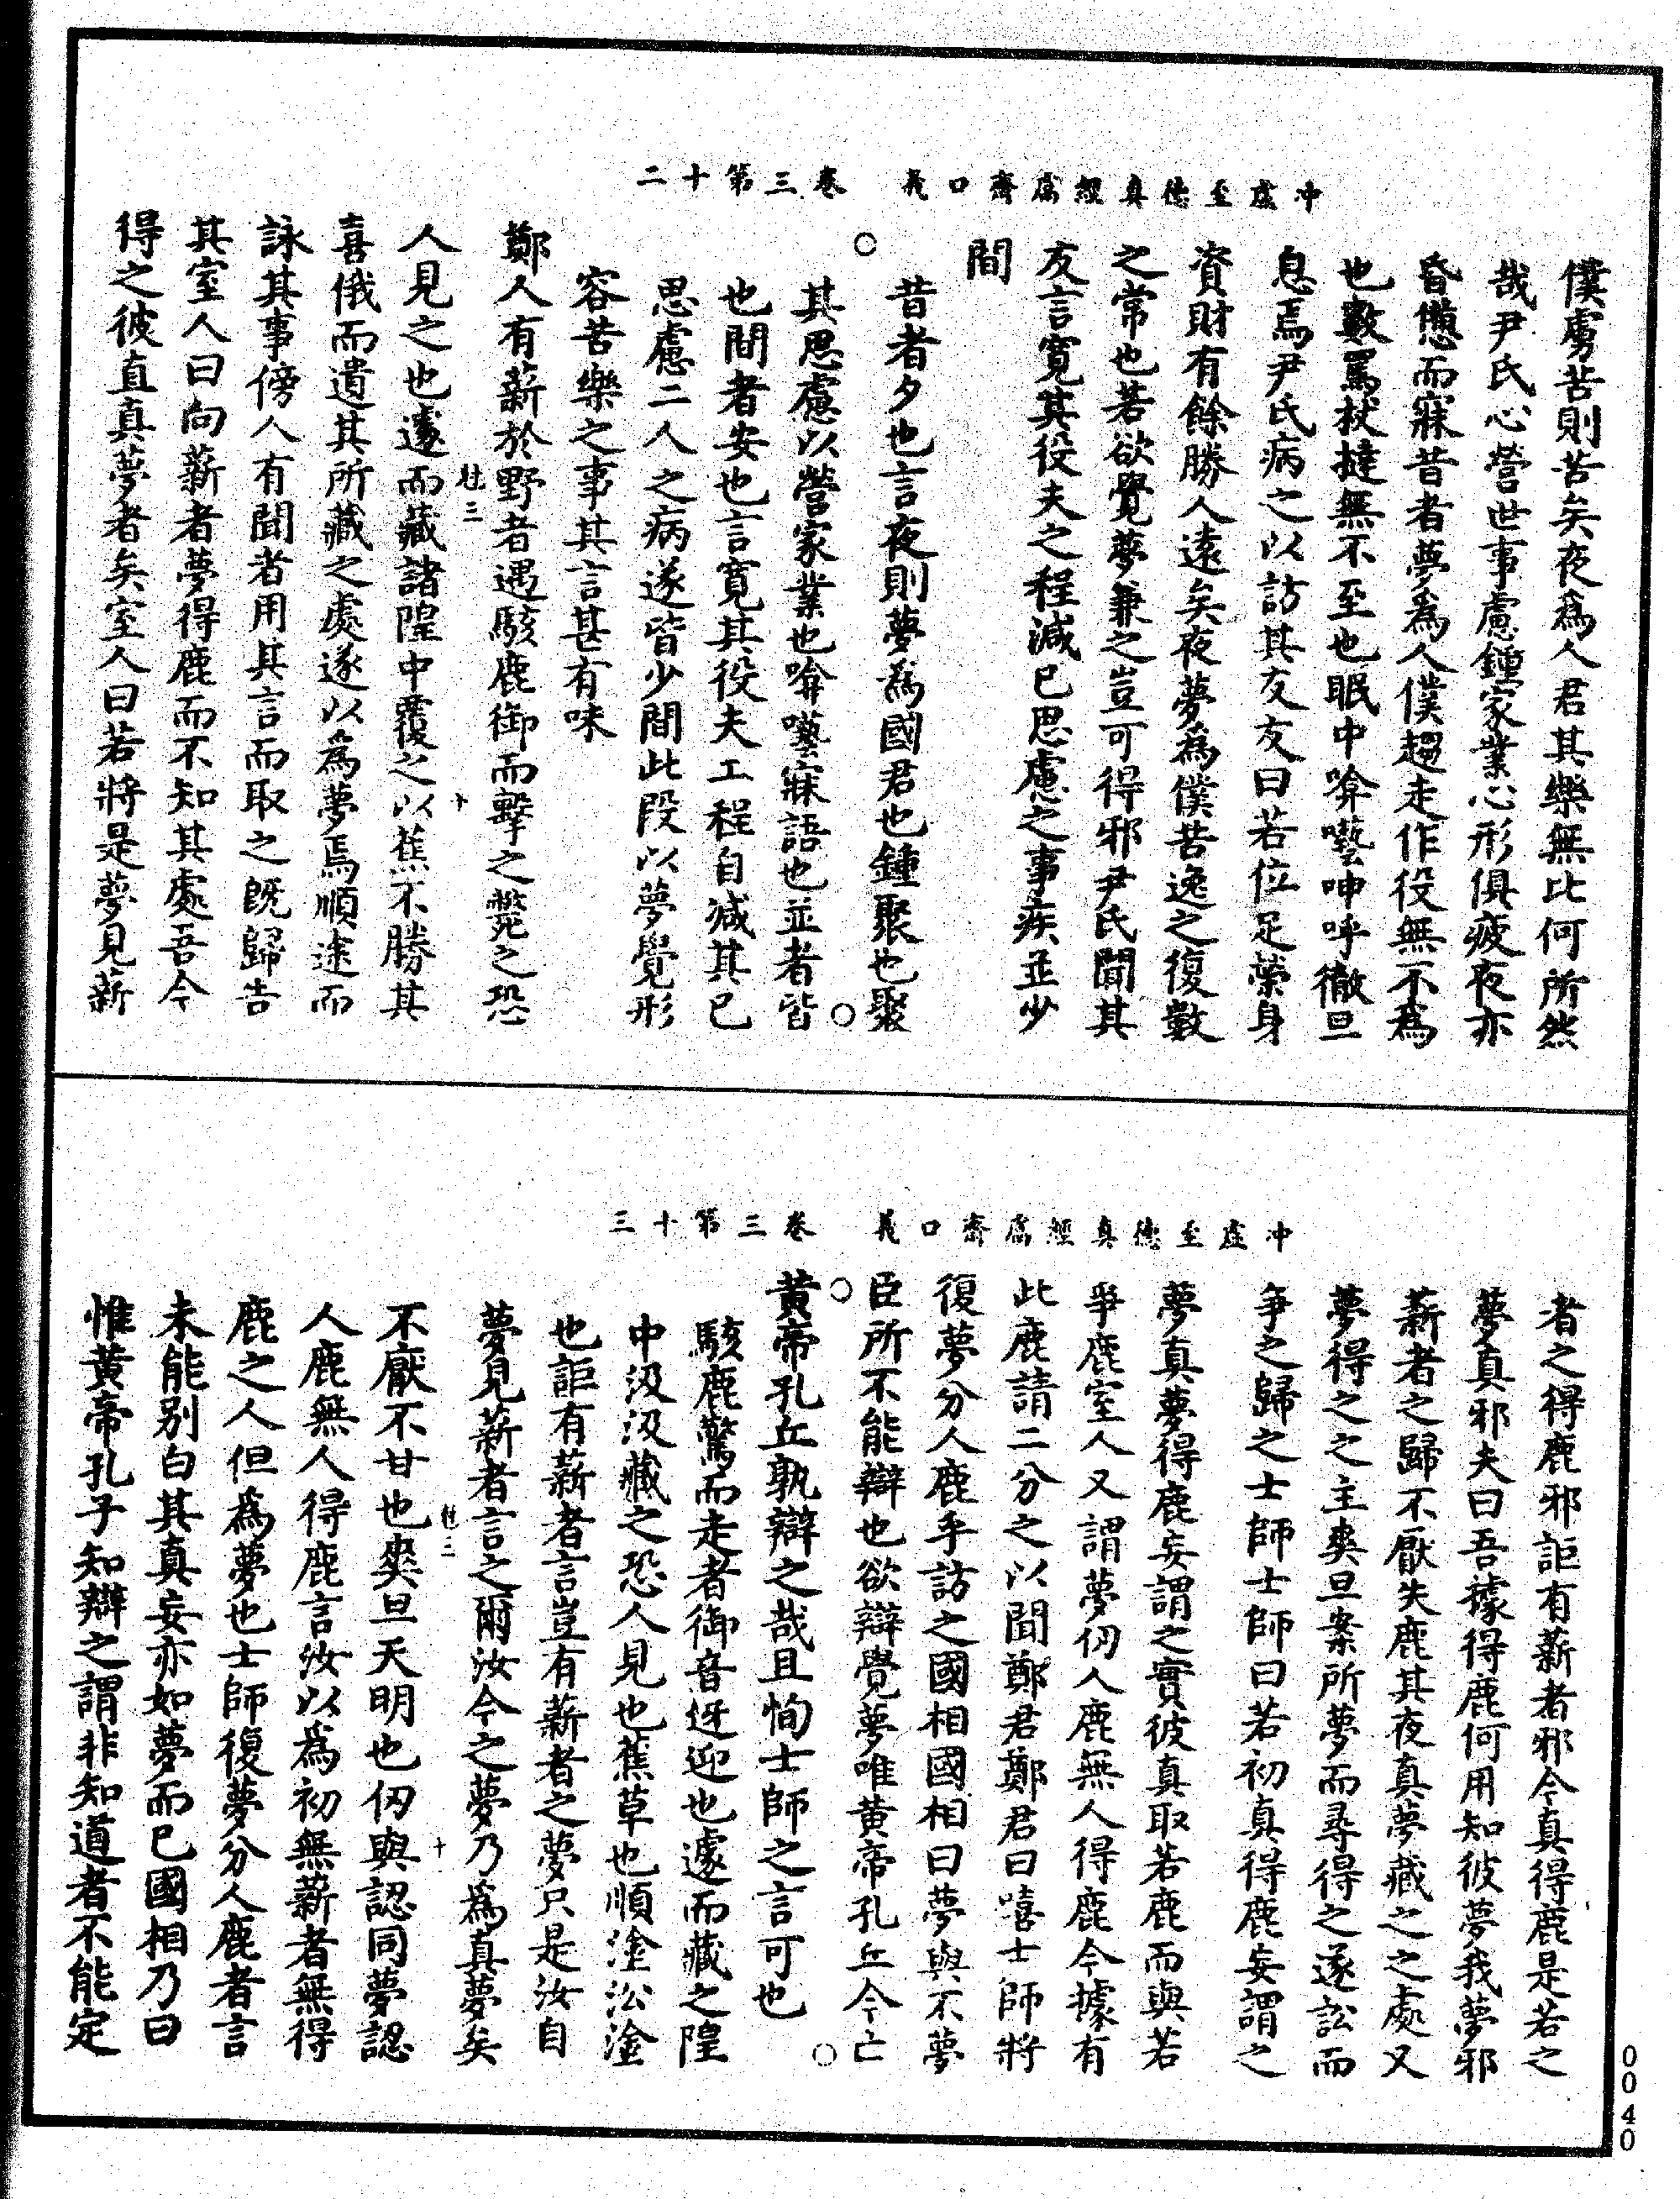 冲虚至德真經鬳齋口義　卷三第十二
僕虜苦則苦矣夜爲人君其樂無比何所然
哉尹氏心營世事慮鍾家業心形俱疲夜亦
昏憊而寐昔者夢爲人僕趨走作役無不爲
也數罵杖撻無不至也眠中啽囈呻呼徹旦
息焉尹氏病之以訪其友友曰若位足榮身
資財有餘勝人遠矣夜夢爲僕苦逸之復數
之常也若欲覺夢兼之豈可得邪尹氏聞其
友言寬其役夫之程減已思慮之事疾並少
間
○昔者夕也言夜則夢爲國君也鍾聚也聚
其思慮以營家業也啽囈寐語也並者皆
也間者安也言寬其役夫工程自減其已
思慮二人之病遂皆少間此段以夢覺形
容苦樂之事其言甚有味○
鄭人有薪於野者遇駭鹿御而擊之斃之恐
人見之也遽而藏諸隍中覆之以蕉不勝其
喜俄而遺其所藏之處遂以爲夢焉順途而
詠其事傍人有聞者用其言而取之既歸告
其室人曰向薪者夢得鹿而不知其處吾今
得之彼直真夢者矣室人曰若將是夢見薪
冲虚至德真經鬳齋口義　卷三第十三
者之得鹿邪詎有薪者邪今真得鹿是若之
夢真邪夫曰吾據得鹿何用知彼夢我夢邪
薪者之歸不厭失鹿其夜真夢藏之之處又
夢得之之主爽旦案所夢而尋得之遂訟而
爭之歸之士師士師曰若初真得鹿妄謂之
夢真夢得鹿妄謂之實彼真取若鹿而與若
爭鹿室人又謂夢仞人鹿無人得鹿今據有
此鹿請二分之以聞鄭君鄭君曰嘻士師將
復夢分人鹿乎訪之國相國相曰夢與不夢
臣所不能辯也欲辯覺夢唯黄帝孔丘今亡
黄帝孔丘孰辯之哉且恂士師之言可也
○駭鹿驚而走者御音迓迎也遽而藏之隍
中汲汲藏之恐人見也蕉草也順塗沿塗
也詎有薪者言豈有薪者之夢只是汝自
夢見薪者言之爾汝今之夢乃爲真夢矣
不厭不甘也爽旦天明也仞與認同夢認
人鹿無人得鹿言汝以爲初無薪者無得
鹿之人但爲夢也士師復夢分人鹿者言
未能别白其真妄亦如夢而已國相乃曰
惟黄帝孔子知辯之謂非知道者不能定
0040